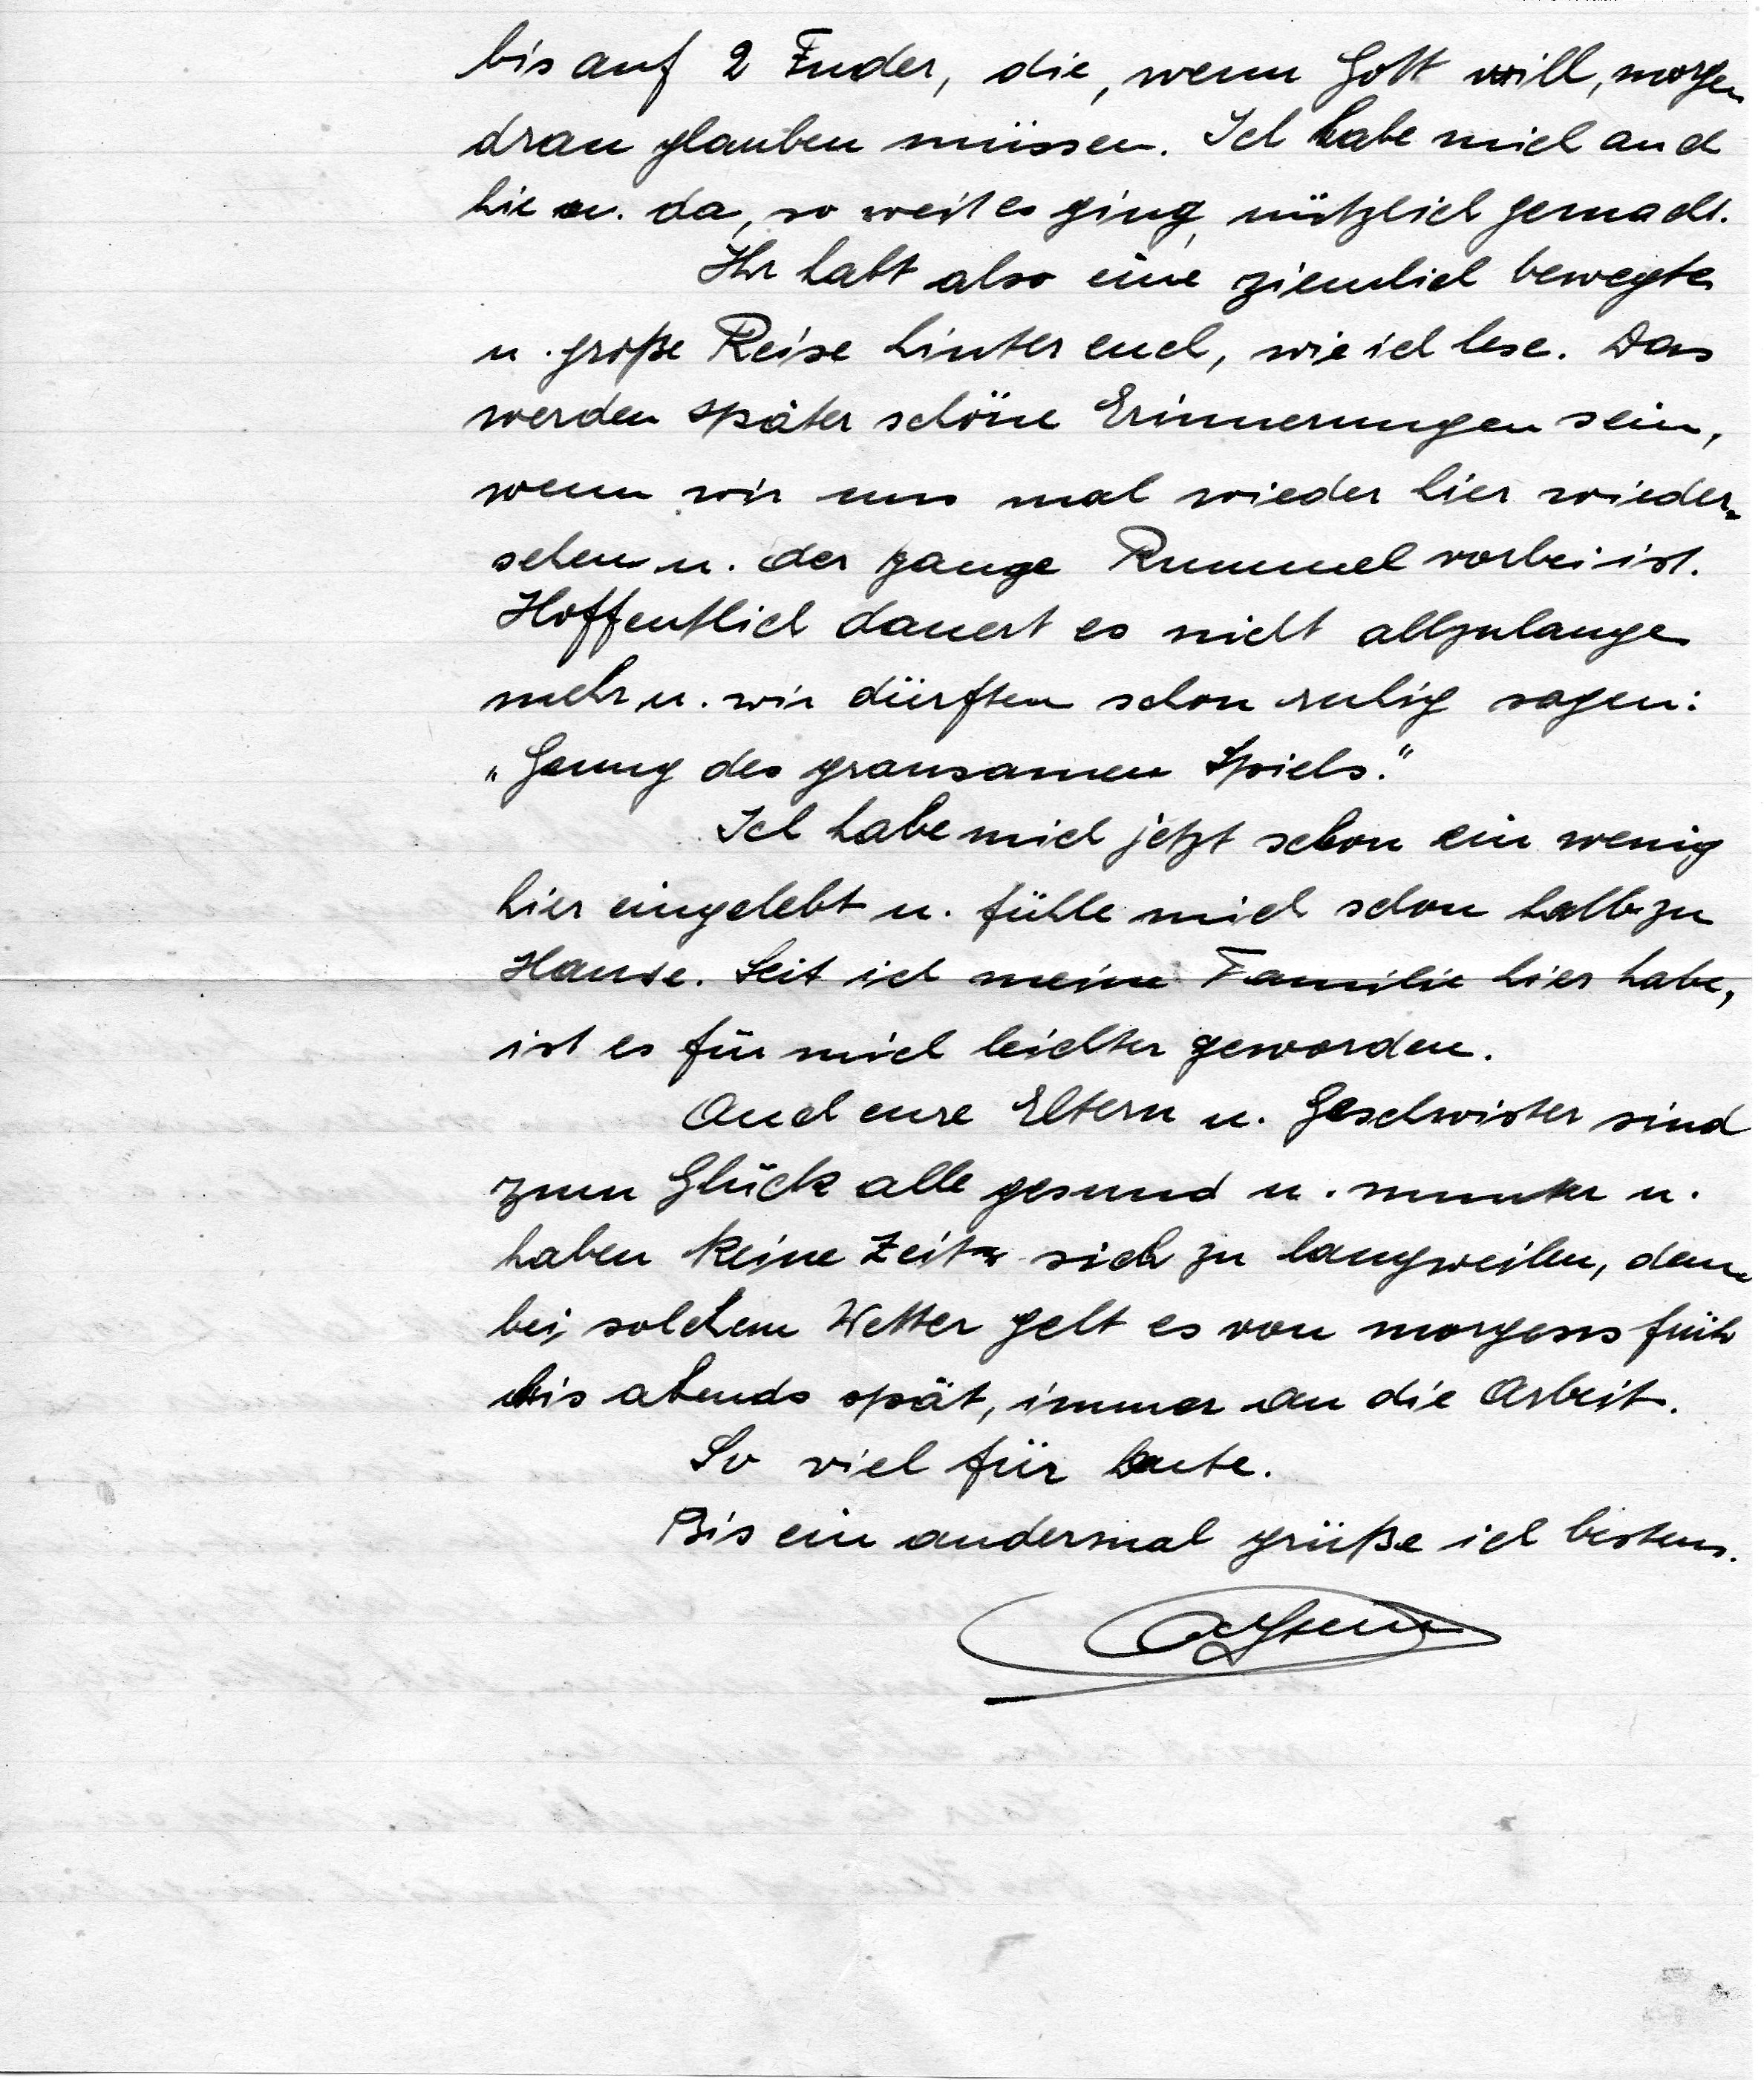 bis auf 2 Fuder, die, wenn Gott will, morgen
dran glauben müssen. Ich habe mich auch
hie u. da, so weit es ging, nützlich gemacht.
Ihr habt also eine ziemlich bewegte
u. große Reise hinter euch, wie ich lese. Das
werden später schöne Erinnerungen sein,
wenn wir uns mal wieder hier wieder-
sehen u. der ganze Rummel vorbei ist.
Hoffentlich dauert es nicht allzulange
mehr u. wir dürften schon ruhig sagen:
„Genug des grausamen Spiels."
Ich habe mich jetzt schon ein wenig
hier eingelebt u. fühle mich schon halb zu
Hause. Seit ich meine Familie hier habe,
ist es für mich leichter geworden.
Auch eure Eltern u. Geschwister sind
zum Glück alle gesund u. munter u.
haben keine Zeit sich zu langweilen, denn
bei solchem Wetter geht es von morgens früh
bis abends spät, immer an die Arbeit.
So viel für heute.
Bis ein andermal grüße ich bestens.